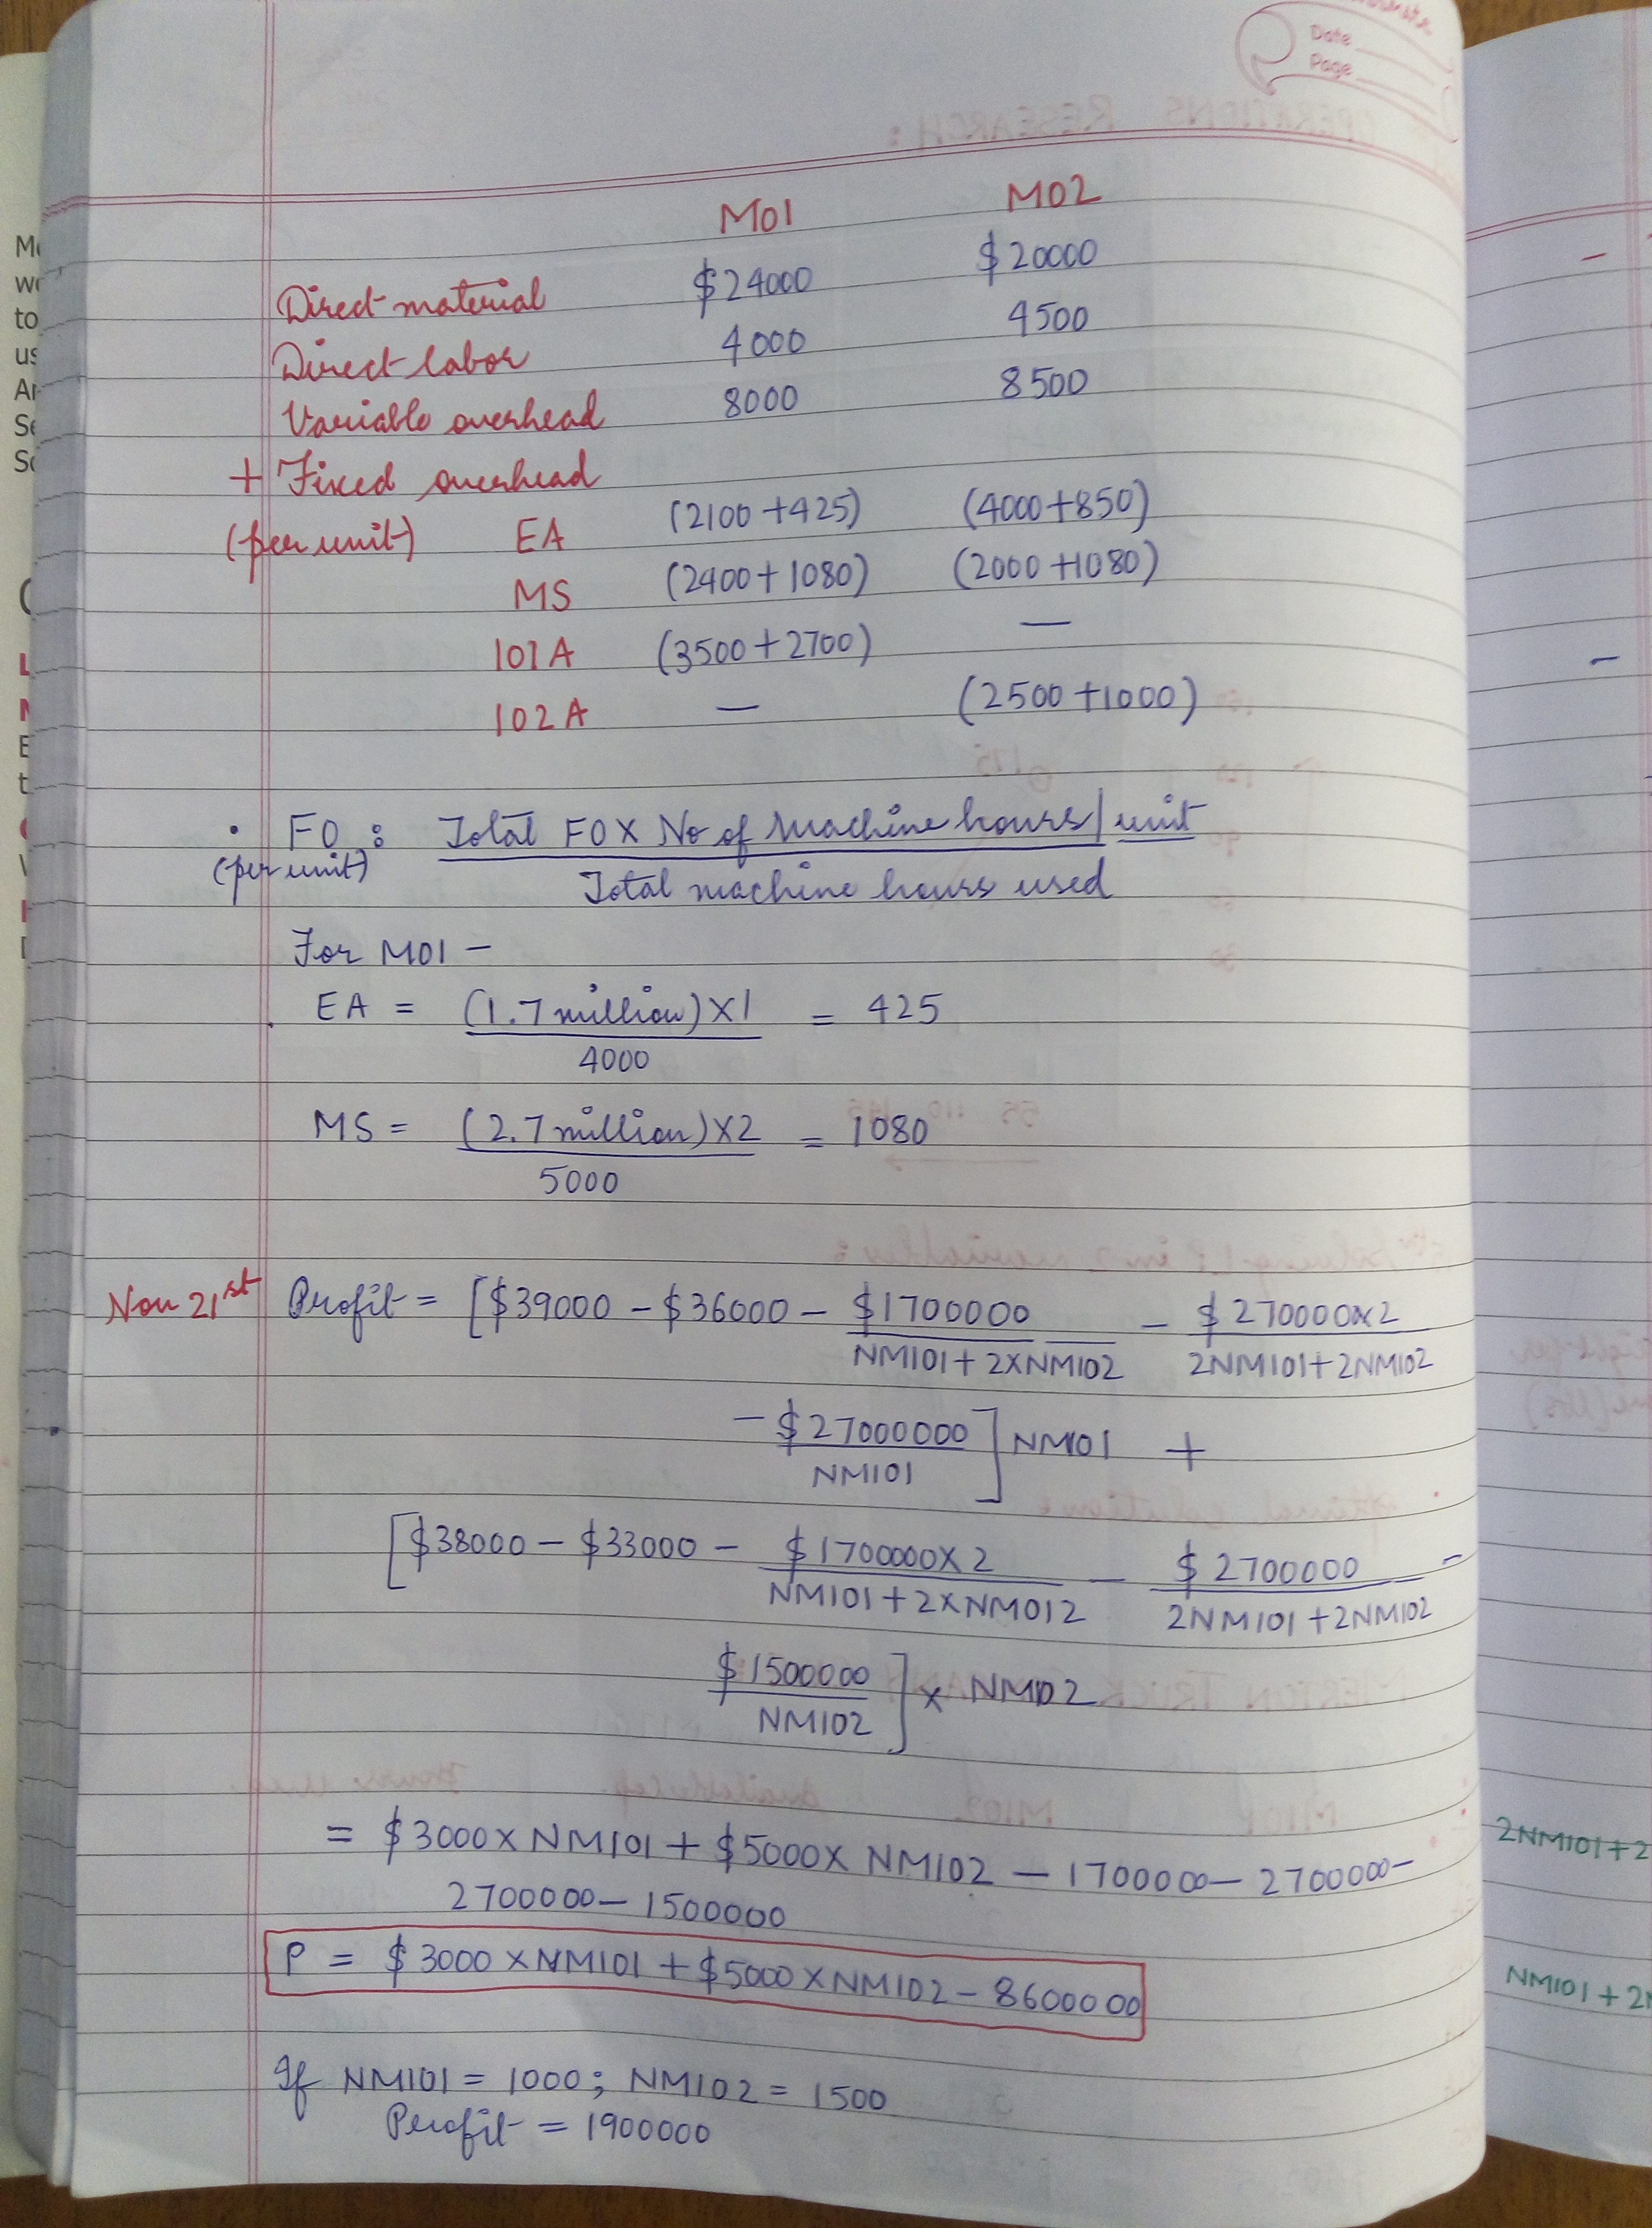 Date
Page
M01 M02
Direct material $24000 $20000
Direct labor 4000 4500
Variable overhead 8000 8500
+ Fixed overhead
(per unit) EA (2100+425) (4000+850)
MS (2400+1080) (2000+1080)
101A (3500+2700) —
102A — (2500+1000)
• FO : Total FO X No of Machine hours/unit
(per unit) Total machine hours used
For M01 —
EA = (1.7 million)X1 = 425
4000
MS = (2.7 million)X2 = 1080
5000
Nov 21st Profit = [$39000 - $36000 - $1700000 - $270000x2
NM101+2XNM102 2NM101+2NM102
- $27000000]NM101 +
NM101
[$38000 - $33000 - $1700000X2 - $2700000 -
NM101+2XNM012 2NM101+2NM102
$1500000] x NM102
NM102
= $3000XNM101 + $5000X NM102 - 1700000 - 2700000-
2700000 - 1500000
P = $3000XNM101 + $5000XNM102 - 8600000
If NM101 = 1000; NM102 = 1500
Profit = 1900000
2NM101+2
NM101+2